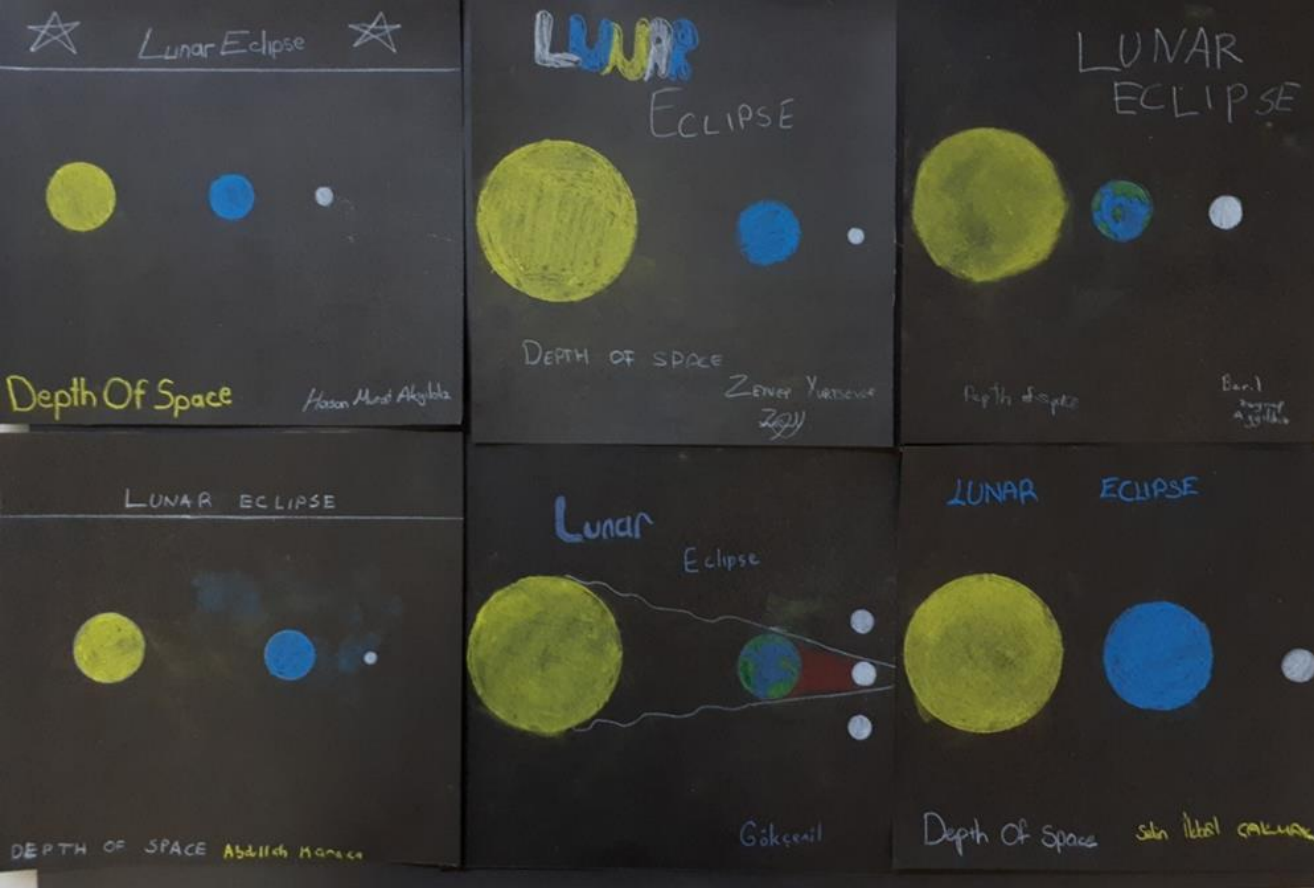 Lunar Eclipse
Depth Of Space
Hasan Murat Akyıldız
LUNAR
ECLIPSE
DEPTH OF SPACE
ZEYNEP YURTSEVER
LUNAR
ECLIPSE
Depth of space
LUNAR ECLIPSE
DEPTH OF SPACE Abdullah
Lunar
Eclipse
Gökçenil
LUNAR ECLIPSE
Depth Of Space
Selin İkbal ÇAKMAK